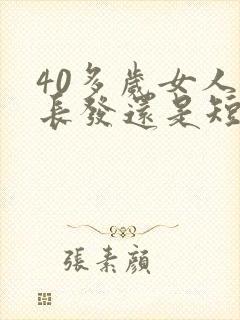 40多歲女人
長發還是短
張素顏